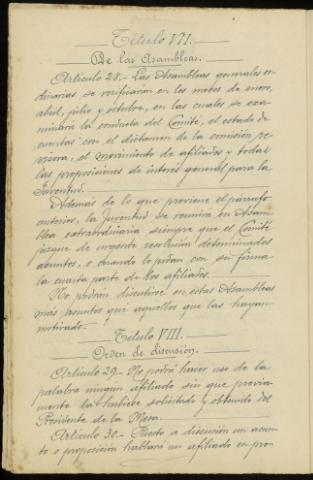 Título VII.
De las Asambleas.
Artículo 28.- Las Asambleas generales or-
dinarias se verificarán en los meses de enero,
abril, julio y octubre, en las cuales se exa-
minará la conducta del Comité, el estado de
cuentas con el dictamen de la comisión re-
visora, el movimiento de afiliados y todas
las proposiciones de interés general para la
Juventud.
Además de lo que previene el párrafo
anterior, la Juventud se reunirá en Asam-
blea extraordinaria siempre que el Comité
juzgue de urgente resolución determinados
asuntos, o cuando lo pidan con su firma
la cuarta parte de los afiliados.
No podrán discutirse en estas Asambleas
más asuntos que aquellos que las hayan
motivado.
Título VIII.
Orden de discusión.
Artículo 29.- No podrá hacer uso de la
palabra ningún afiliado sin que previa-
mente la hubiere solicitado y obtenido del
Presidente de la Mesa.
Artículo 30.- Puesto a discusión un asun-
to o proposición hablará un afiliado en pro-